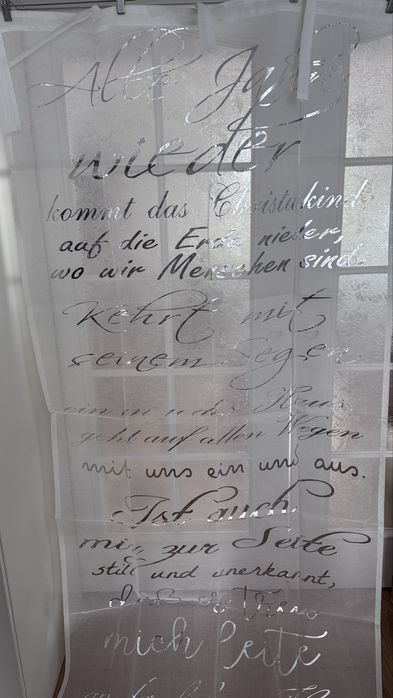 Alle Jahre
wieder
kommt das Christuskind
auf die Erde nieder,
wo wir Menschen sind.
Kehrt mit
seinem Segen
ein in jedes Haus
geht auf allen Wegen
mit uns ein und aus.
Ist auch
mir zur Seite
still und unerkannt,
daß es treu
mich leite
an